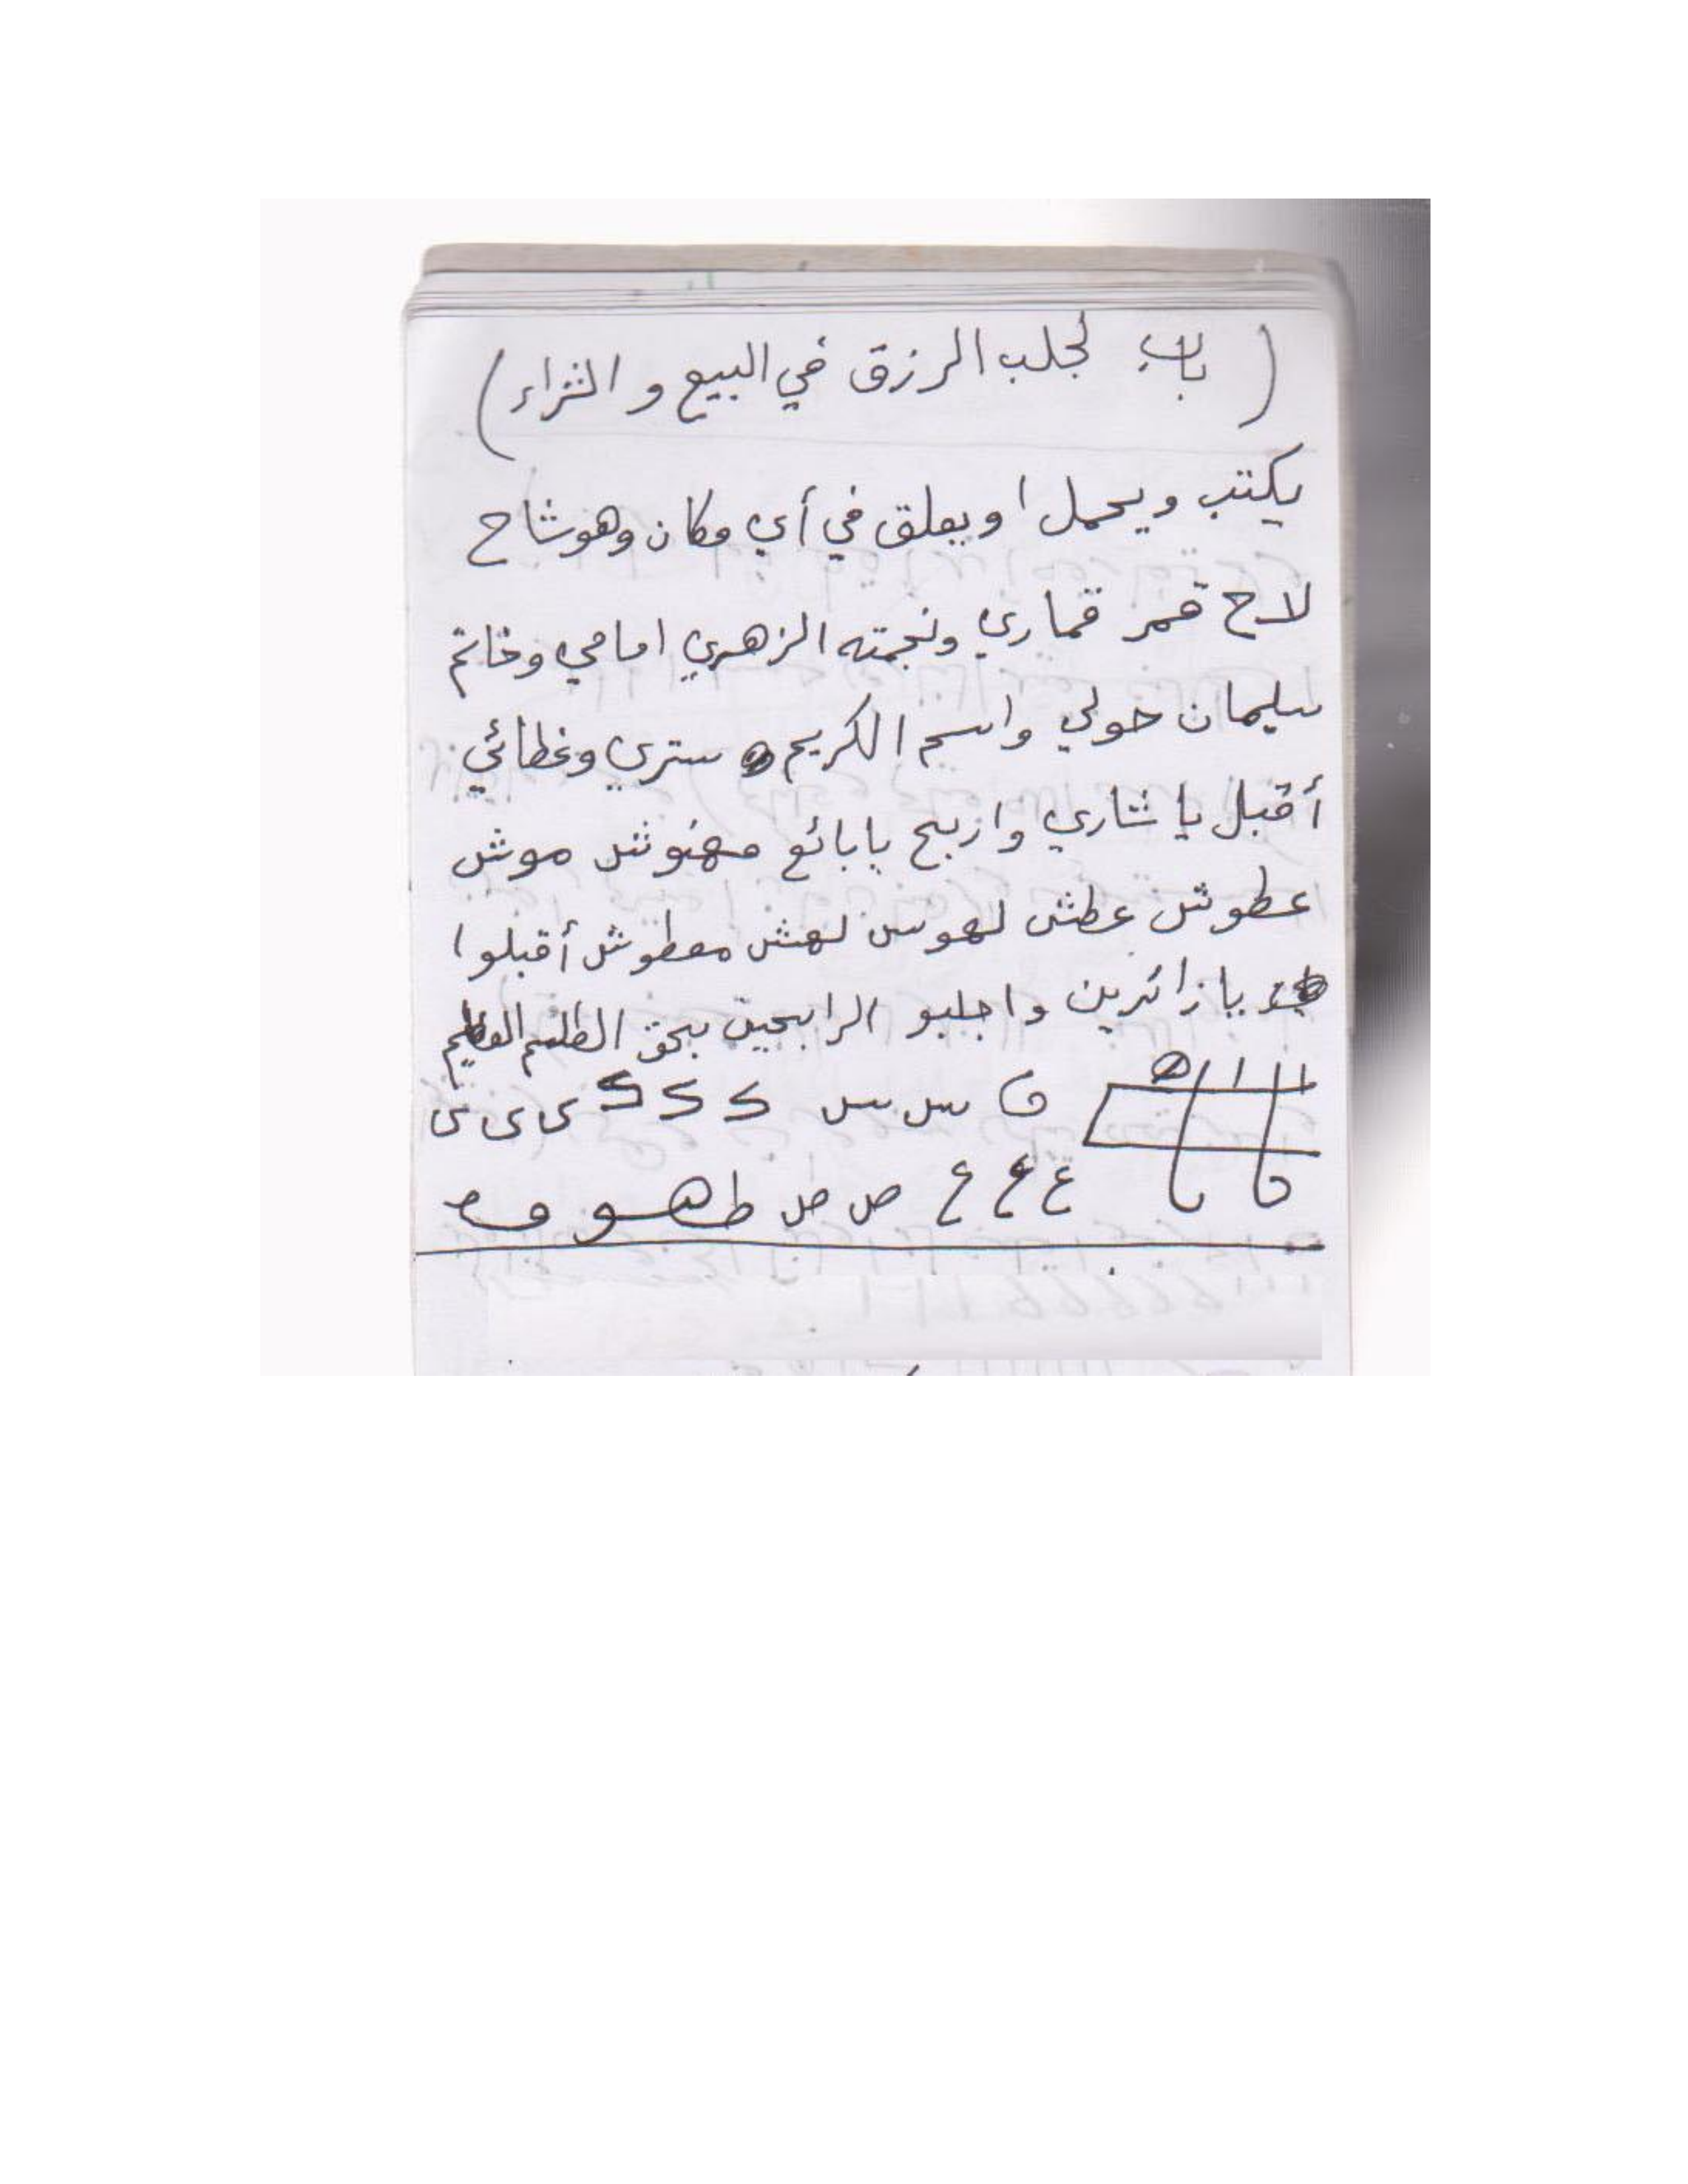 ( باب لجلب الرزق في البيع و الشراء )
يكتب ويحمل او يعلق في أي مكان وهو شاح
لاح قمر قماري ونجمته الزهري امامي وخاتم
سليمان حولي واسم الكريم ستري وغطائي
أقبل يا شاري واربح يا بائع مهنوش موش
عطوش عطش لهوس لهش معطوش أقبلوا
يا زائرين واجلبو الرابحين بحق الطلسم العظيم
س س ى ى ى
ع ع ع ص ص طهو